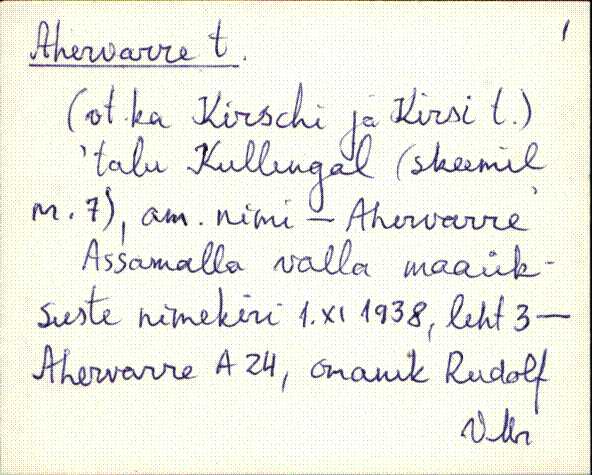 Ahervarre t. 1
(vt. ka Kirschi ja Kirsi t.)
'talu Kullengal (skeemil
nr. 7), am. nimi – Ahervarre'
Assamalla valla maaük-
suste nimekiri 1.XI 1938, leht 3 —
Ahervarre A 24, omanik Rudolf